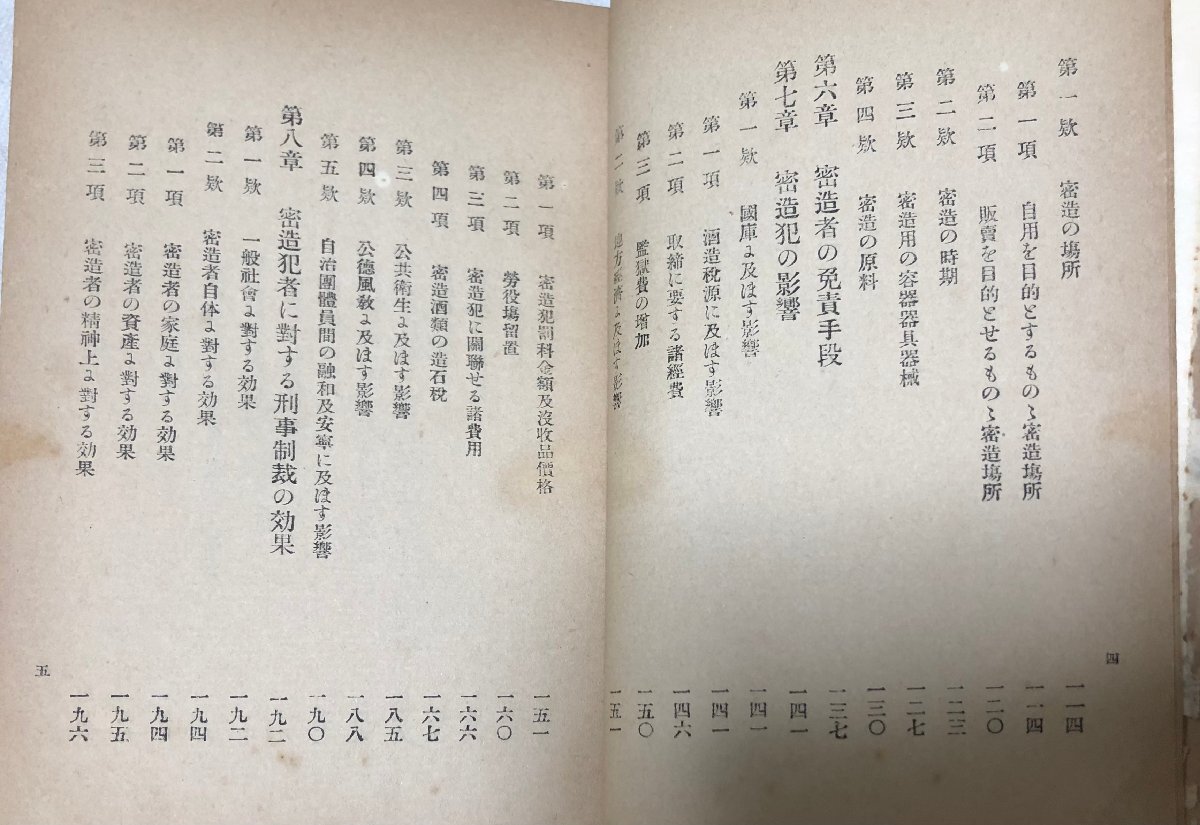 第一欵 密造の塲所 一一四
第一項 自用を目的とするものゝ密造塲所 一一四
第二項 販賣を目的とせるものゝ密造塲所 一二〇
第二欵 密造の時期 一二三
第三欵 密造用の容器器具器械 一二七
第四欵 密造の原料 一三〇
第六章 密造者の免責手段 一三七
第七章 密造犯の影響 一四一
第一欵 國庫に及ほす影響 一四一
第一項 酒造税源に及ほす影響 一四一
第二項 取締に要する諸經費 一四六
第三項 監獄費の增加 一五〇
第二欵 地方經濟に及ほす影響 一五一
四
第一項 密造犯罰科金額及沒收品價格 一五一
第二項 勞役塲留置 一六〇
第三項 密造犯に關聯せる諸費用 一六六
第四項 密造酒類の造石税 一六七
第三欵 公共衛生に及ほす影響 一八五
第四欵 公德風敎に及ほす影響 一八八
第五欵 自治團體員間の融和及安寧に及ほす影響 一九〇
第八章 密造犯者に對する刑事制裁の効果 一九二
第一欵 一般社會に對する効果 一九二
第二欵 密造者自体に對する効果 一九四
第一項 密造者の家庭に對する効果 一九四
第二項 密造者の資產に對する効果 一九五
第三項 密造者の精神上に對する効果 一九六
五